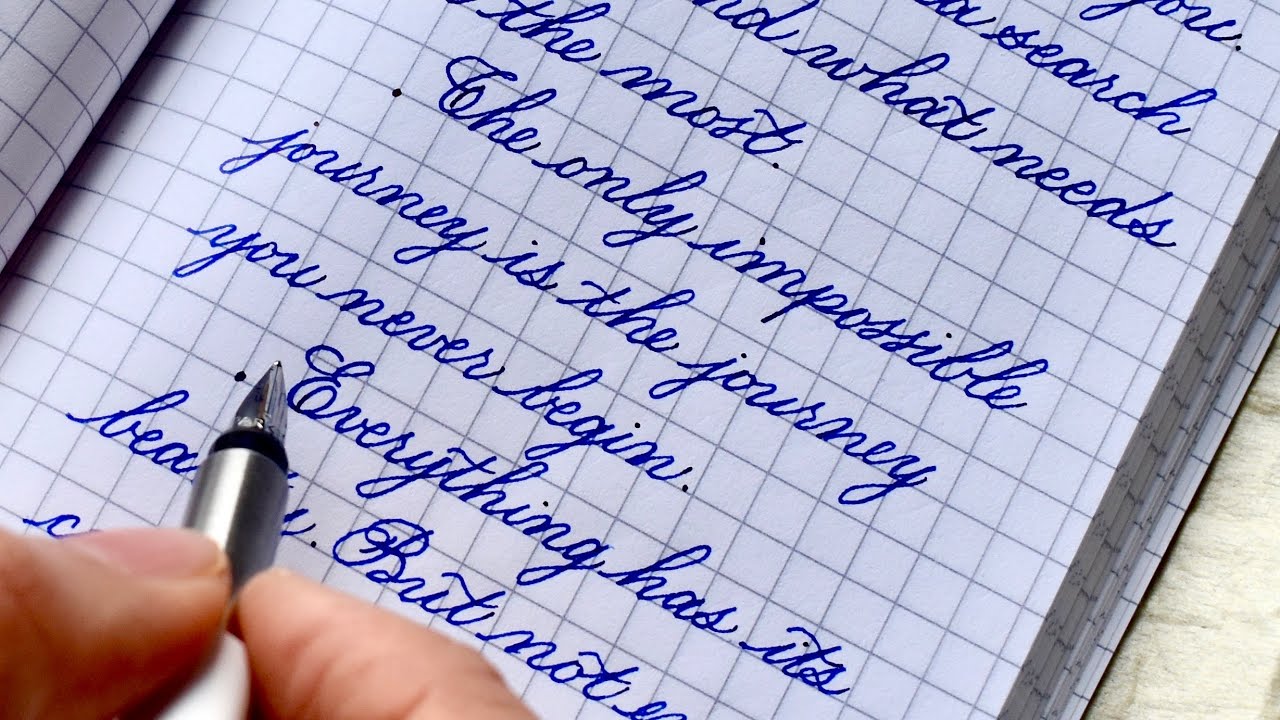 you.
a search
and what needs
the most.
The only impossible
journey is the journey
you never begin.
Everything has its
But not